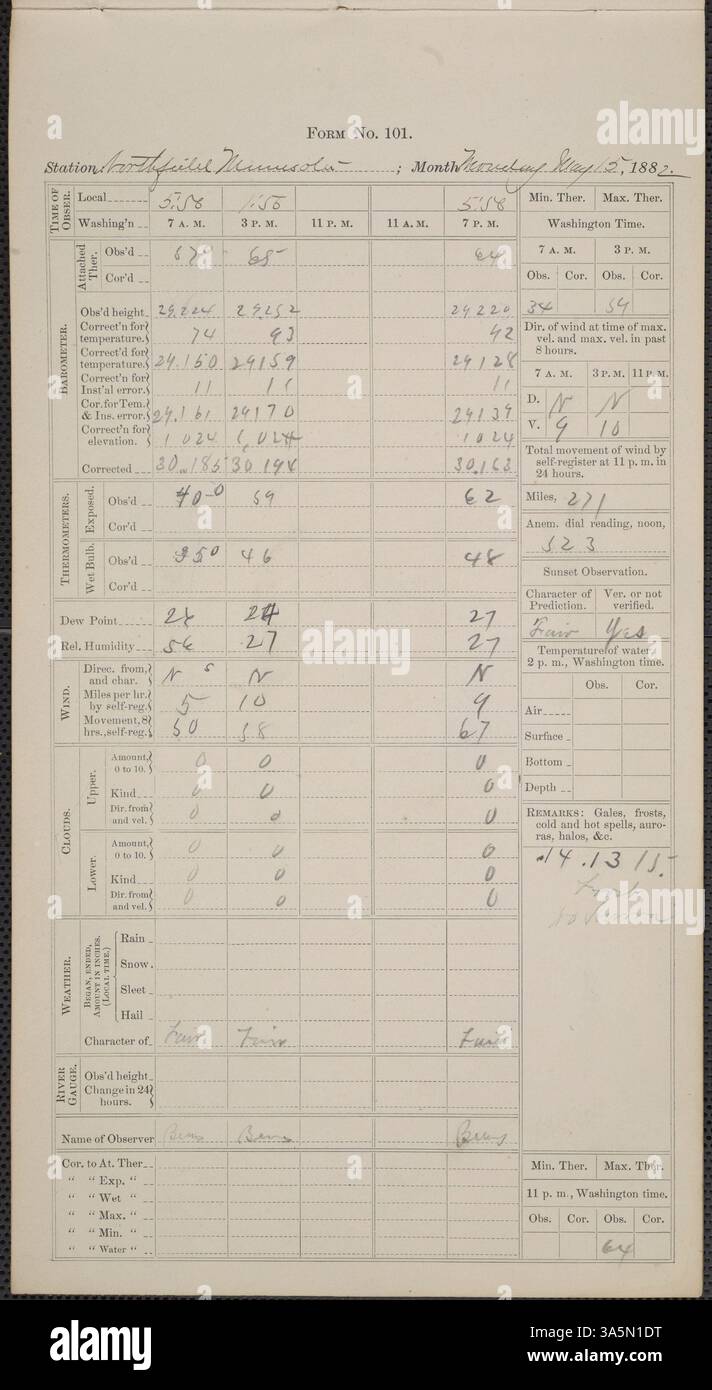 FORM NO. 101.
Station: Northfield Minnesota ; Month Monday May 15, 1882.
TIME OF OBSER.
Local 5:58 1:58 5:58
Washing'n 7 A. M. 3 P. M. 11 P. M. 11 A. M. 7 P. M.
BAROMETER.
Attached Ther.
Obs'd 65 64
Cor'd
Obs'd height 29.224 29.252 29 220
Correct'n for temperature. 74 93 92
Correct'd for temperature. 29.150 29159 29128
Correct'n for Inst'al error. 11 11 11
Cor. for Tem. & Ins. error. 29.161 29170 29139
Correct'n for elevation. 1024 1,024 1024
Corrected 30.185 30 194 30.163
THERMOMETERS.
Exposed.
Obs'd 40-0 59 62
Cor'd
Wet Bulb.
Obs'd 350 46 48
Cor'd
Dew Point 28 24 27
Rel. Humidity 56 27 27
WIND.
Direc. from, and char. N s N N
Miles per hr. by self-reg. 5 10 9
Movement, 8 hrs., self-reg. 50 58 67
CLOUDS.
Upper.
Amount, 0 to 10. 0 0 0
Kind 0 0 0
Dir. from and vel. 0 0 0
Lower.
Amount, 0 to 10. 0 0 0
Kind 0 0 0
Dir. from and vel. 0 0 0
WEATHER.
BEGAN, ENDED, AMOUNT IN INCHES. (LOCAL TIME.)
Rain
Snow
Sleet
Hail
Character of Fair Fair Fair
RIVER GAUGE.
Obs'd height
Change in 24 hours.
Name of Observer
Cor. to At. Ther
" " Exp. "
" " Wet "
" " Max. "
" " Min. "
" " Water "
Min. Ther. Max. Ther.
Washington Time.
7 A. M. 3 P. M.
Obs. Cor. Obs. Cor.
34 59
Dir. of wind at time of max. vel. and max. vel. in past 8 hours.
7 A. M. 3 P. M. 11 P. M.
D. N N
V. 9 10
Total movement of wind by self-register at 11 p. m. in 24 hours.
Miles, 271
Anem. dial reading, noon,
523
Sunset Observation.
Character of Prediction. Ver. or not verified.
Fair Yes
Temperature of water, 2 p. m., Washington time.
Obs. Cor.
Air
Surface
Bottom
Depth
REMARKS: Gales, frosts, cold and hot spells, auroras, halos, &c.
14.13 15.
Min. Ther. Max. Ther.
11 p. m., Washington time.
Obs. Cor. Obs. Cor.
64
alamy
Image ID: 3A5N1DT
www.alamy.com